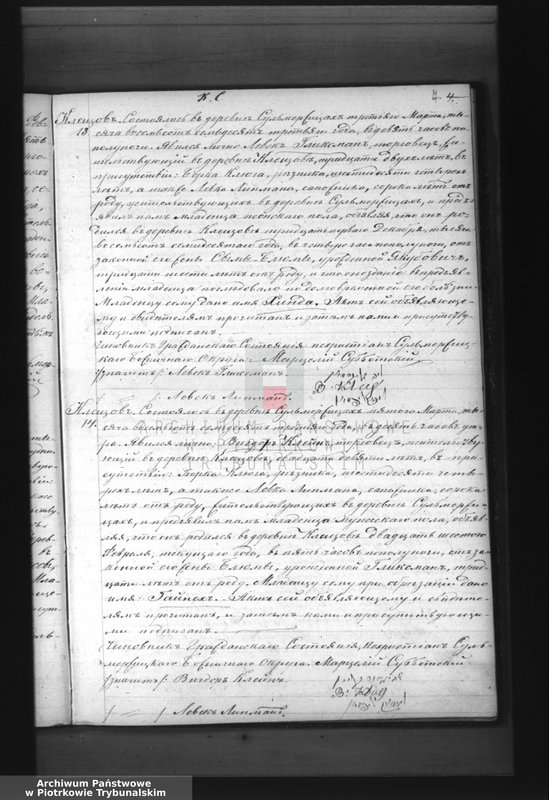 4.
Клещовъ. Состоялось въ деревнѣ Сульмержицахъ третьяго Марта, ты-
13. сяча восемьсотъ семьдесятъ третьяго года, въ девять часовъ по
полуночи. Явился лично Левекъ Гликсманъ, торговецъ, жи-
тельствующій въ деревнѣ Клещовъ, тридцати двухъ лѣтъ, въ
присутствіи: Берка Клюга, рѣзника, шестидесяти четырехъ
лѣтъ, а также Левка Липмана, сапожника, сорока лѣтъ отъ
роду, жительствующихъ въ деревнѣ Сульмержицахъ, и предъ-
явилъ намъ младенца женскаго пола, объявляя что онъ ро-
дился въ деревнѣ Клещовъ тридцать перваго Декабря, тысяча
восемьсотъ семидесятаго года, въ четыре часа пополуночи, отъ
законной его жены Сымы-Блюмы, урожденной Якубовичъ,
тридцати шести лѣтъ отъ роду,
Младенцу сему дано имя Хинда. Актъ сей объявляюще-
му и свидѣтелямъ прочитанъ и затѣмъ нами и присутству-
ющими подписанъ.
Чиновникъ Гражданскаго Состоянія нехристіанъ Сульмержиц-
каго Божничнаго Округа: Марцелій Субботскій
/значитъ/: Левекъ Гликсманъ.
/ — / Левекъ Липманъ.
Клещовъ. Состоялось въ деревнѣ Сульмержицахъ пятаго Марта, ты-
14. сяча восемьсотъ семьдесятъ третьяго года, въ девять часовъ ут-
ра. Явился лично: Вигдоръ Клейнъ, торговецъ, жительству-
ющій въ деревнѣ Клещовъ, двадцати девяти лѣтъ, въ при-
сутствіи: Берка Клюга, рѣзника, шестидесяти четы-
рехъ лѣтъ, а также Левка Липмана, сапожника, сорока
лѣтъ отъ роду, жительствующихъ въ деревнѣ Сульмержи-
цахъ, и предъявилъ намъ младенца мужескаго пола, объяв-
ляя, что онъ родился въ деревнѣ Клещовъ двадцать шестого
Февраля, текущаго года, въ пять часовъ пополуночи, отъ за-
конной его жены Блюмы, урожденной Гликсманъ, трид-
цати лѣтъ отъ роду. Младенцу сему при обрѣзаніи дано
имя: Гайнехъ. Актъ сей объявляющему и свидѣте-
лямъ прочитанъ, и затѣмъ нами и присутствующи-
ми подписанъ.
Чиновникъ Гражданскаго Состоянія, Нехристіанъ Суль-
мержицкаго Божничнаго Округа. Марцелій Субботскій
/значитъ/: Вигдоръ Клейнъ.
/ — / Левекъ Липманъ.
ARCHIWUM PAŃSTWOWE
W PIOTRKOWIE
TRYBUNALSKIM
Archiwum Państwowe
w Piotrkowie Trybunalskim